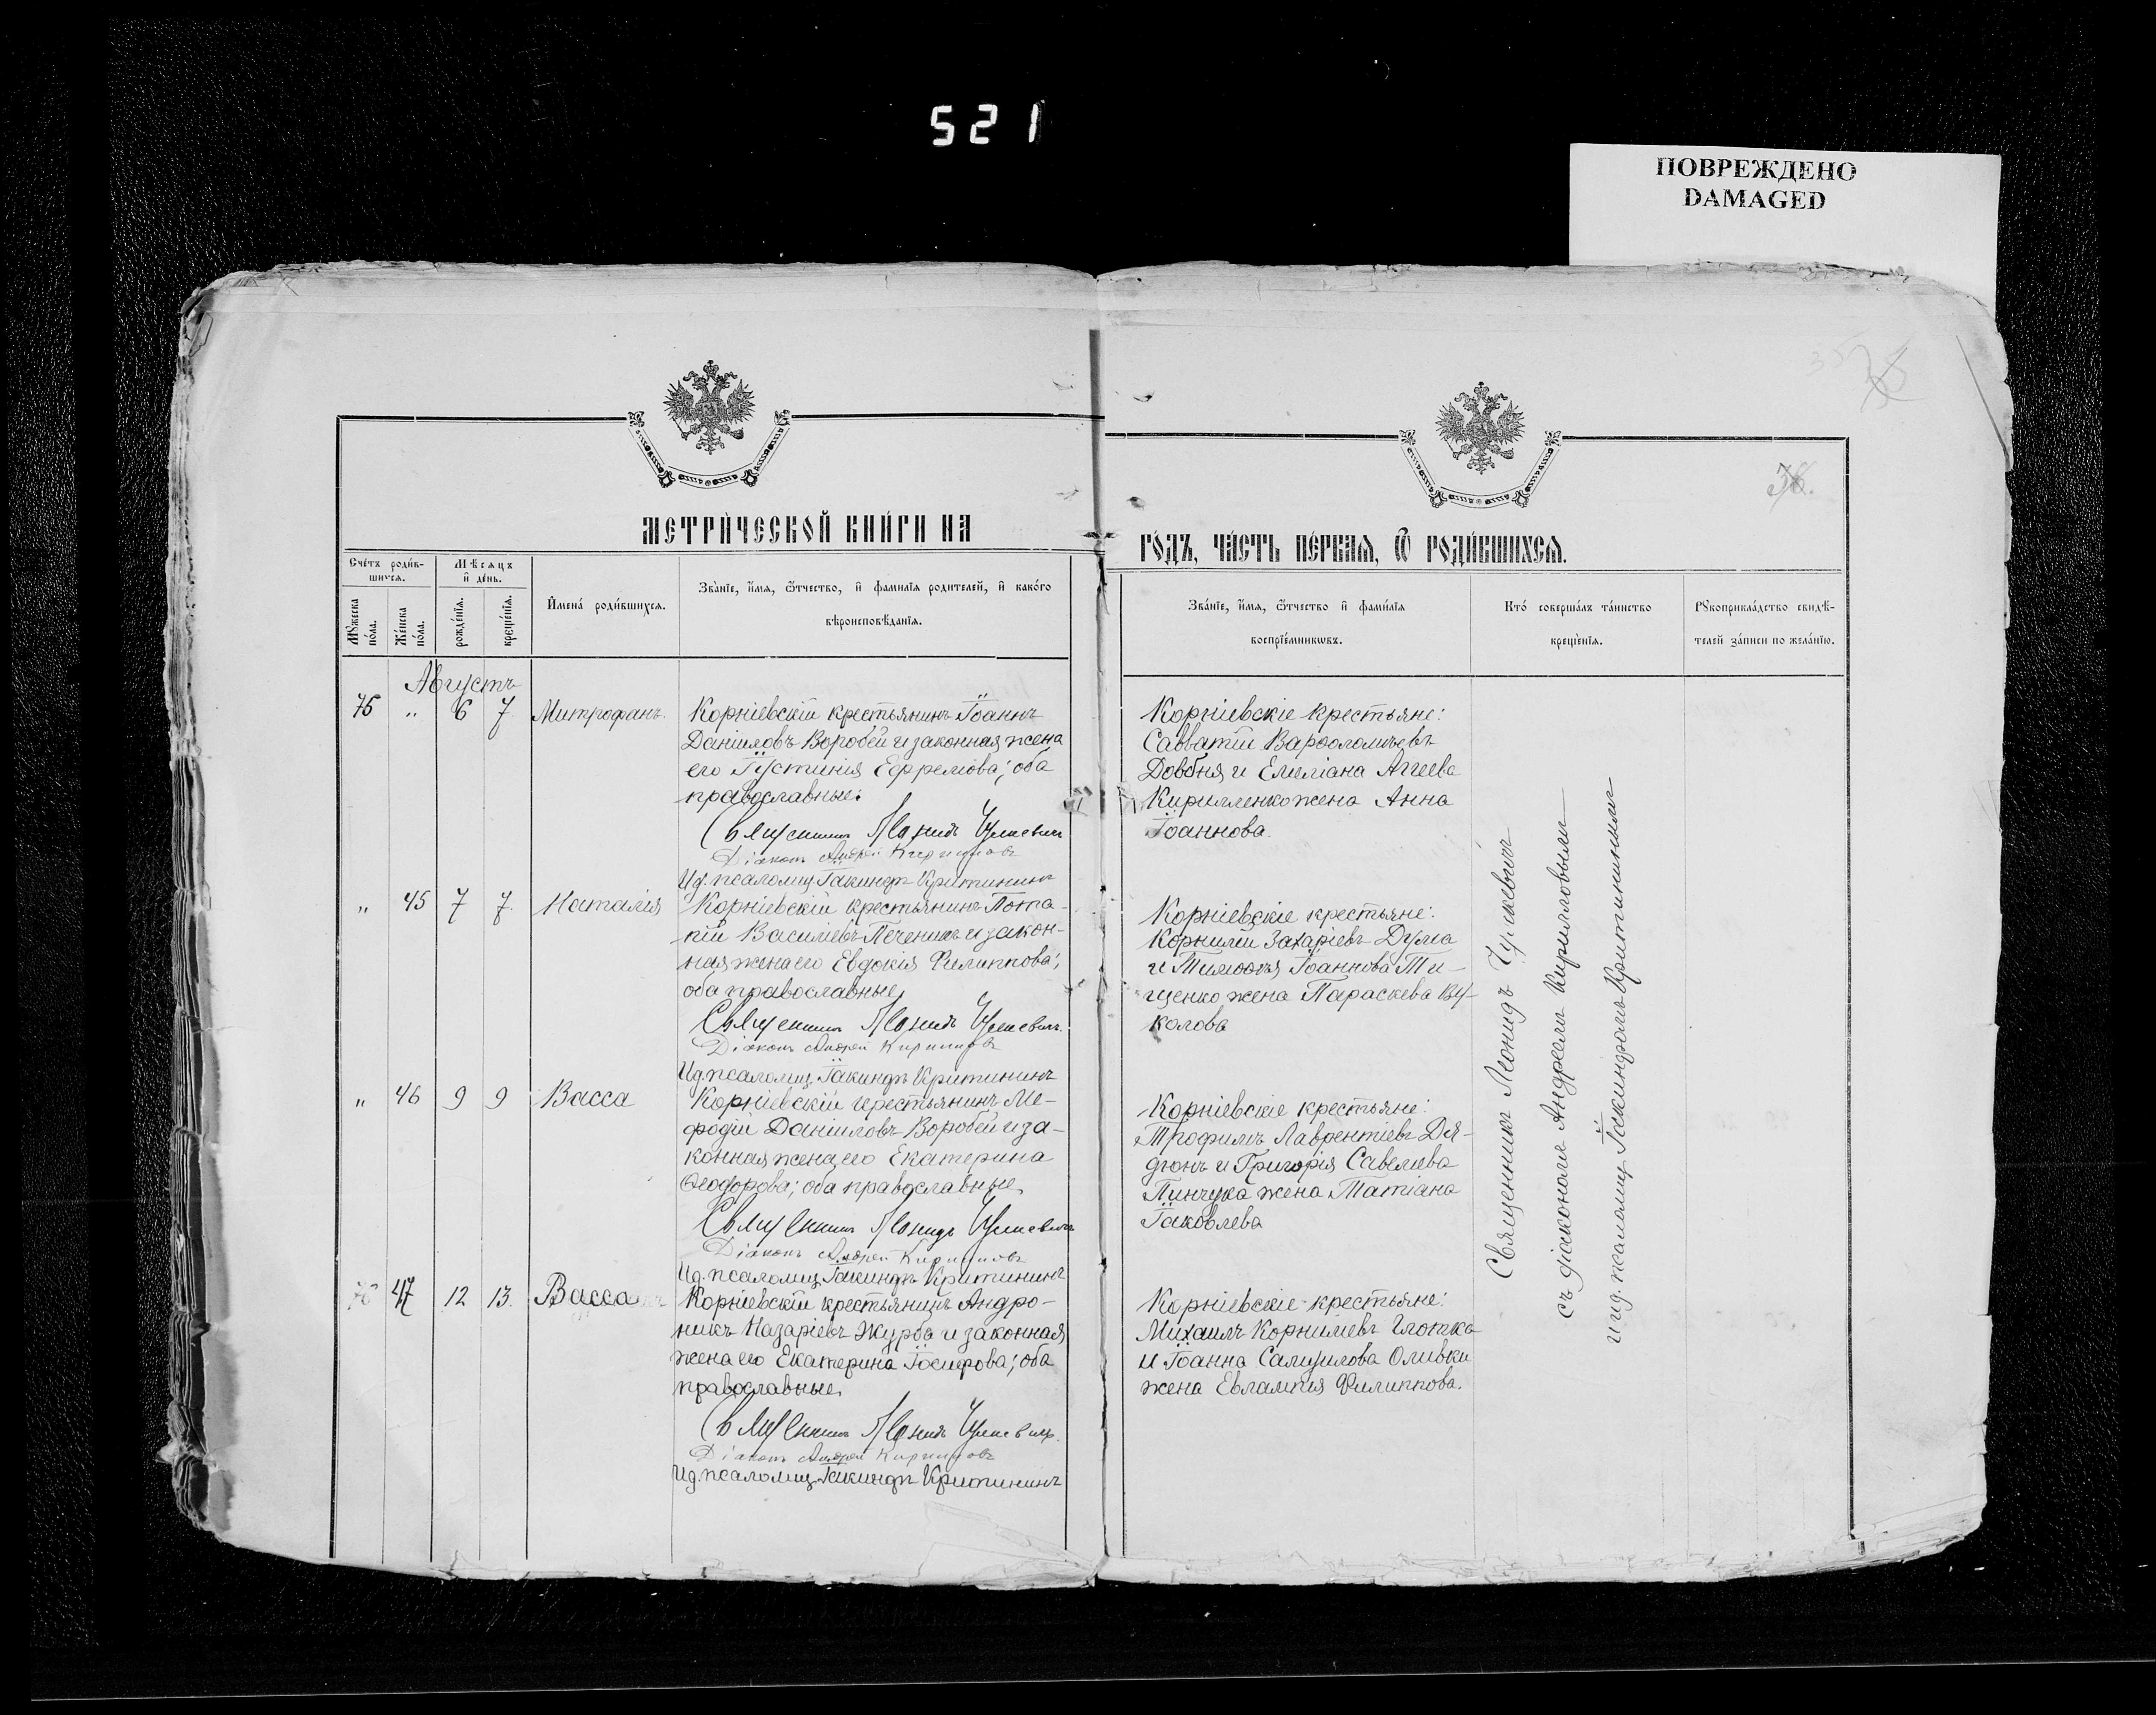 521
ПОВРЕЖДЕНО
DAMAGED
36.
МЕТРИ́ЧЕСКОЙ КНИ́ГИ НА
ГО́ДЪ, ЧА́СТЬ ПЕ́РВАЯ, Ѿ РОДИ́ВШИХСЯ.
Сче́тъ роди́в-
шихся.
Мѣ́сяцъ
и҆ де́нь.
Мꙋ́жеска
по́ла.
Же́нска
по́ла.
рожде́нїя.
креще́нїя.
И҆мена̀ роди́вшихся.
Зва́нїе, и҆́мя, ѻ҆́тчество, и҆ фами́лїя родителей, и҆ како́го
вѣроисповѣ́данїя.
Зва́нїе, и҆́мя, ѻ҆́тчество и҆ фами́лїя
воспрїе́мникѡвъ.
Кто̀ соверша́лъ та́инство
креще́нїя.
Рꙋкоприкла́дство свидѣ́-
телей за́писи по жела́нїю.
Августъ
76 " 6 7 Митрофанъ.
Корніевскій крестьянинъ Іоаннъ
Даніиловъ Воробей и законная жена
его Іустинія Ефремова; оба
православные.
Священникъ Леонидъ Чулкевичъ
Діаконъ Андрей Кирилловъ
И.д. псаломщ. Іакинфъ Критининъ
Корніевскіе крестьяне:
Савватій Варѳоломѣевъ
Довбня и Емиліана Аггеева
Кирилленко жена Анна
Іоаннова.
" 45 7 7. Наталія
Корніевскій крестьянинъ Пота-
пій Василіевъ Печеникъ и закон-
ная жена его Евдокія Филиппова;
оба православные,
Священникъ Леонидъ Чулкевичъ.
Діаконъ Андрей Кирилловъ
И.д. псаломщ. Іакинфъ Критининъ
Корніевскіе крестьяне:
Корнилій Захаріевъ Дума
и Тимоѳея Іоаннова Ти-
щенко жена Параскева Ву-
колова
" 46 9 9 Васса
Корніевскій крестьянинъ Ме-
фодій Даніиловъ Воробей и за-
конная жена его Екатерина
Ѳеодорова; оба православные.
Священникъ Леонидъ Чулкевичъ
Діаконъ Андрей Кирилловъ
И.д. псаломщ. Іакинфъ Критининъ
Корніевскіе крестьяне:
Трофимъ Лаврентіевъ Дя-
дюнъ и Григорія Савелиева
Пинчука жена Татіана
Іаковлева
47 12 13. Васса
Корніевскій крестьянинъ Андро-
никъ Назаріевъ Журба и законная
жена его Екатерина Іосифова; оба
православные.
Священникъ Леонидъ Чулкевичъ.
Діаконъ Андрей Кирилловъ
И.д. псаломщ. Іакинфъ Критининъ
Корніевскіе крестьяне:
Михаилъ Корниліевъ Глотка
и Іоанна Самуилова Оливки
жена Евлампія Филиппова.
Священникъ Леонидъ Чулкевичъ
съ діакономъ Андреемъ Кирилловымъ
и и.д. псаломщ. Іакинфомъ Критининымъ